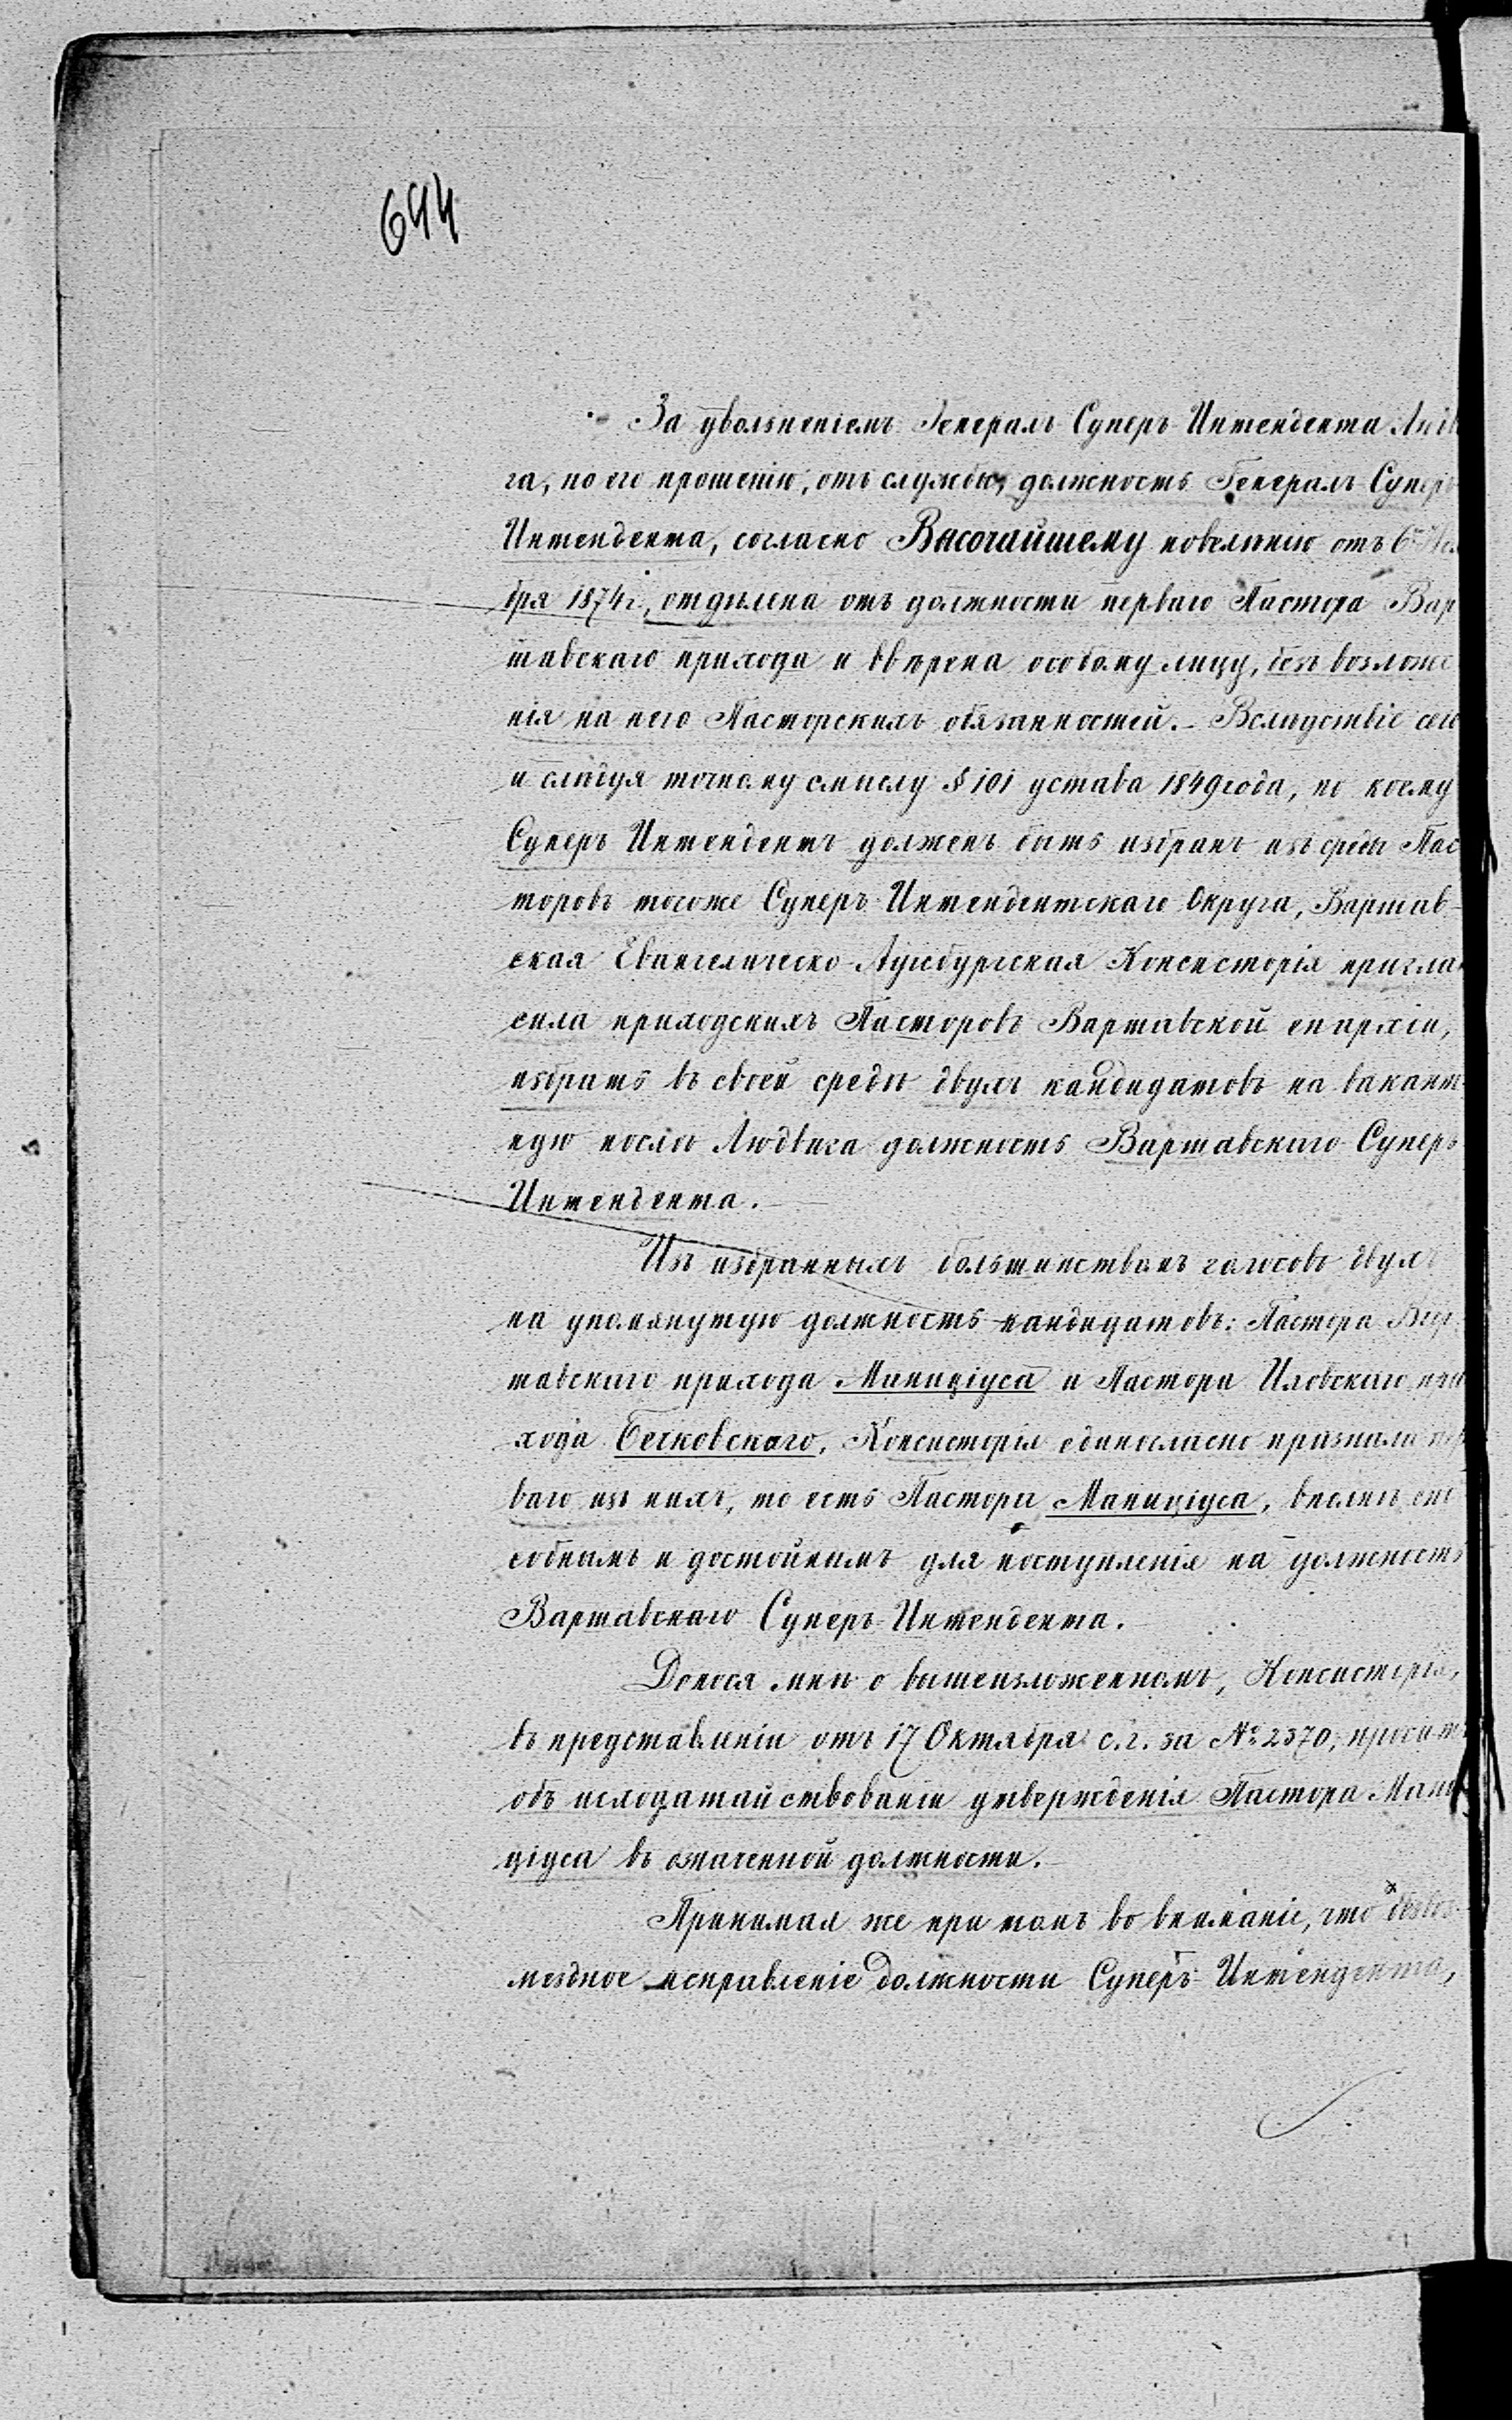 644
За увольненіемъ Генералъ Суперъ Интендента Людви
га, по его прошенію, отъ службы, должность Генералъ Суперъ
Интендента, согласно Высочайшему повелѣнію отъ 6го
бря 1874 г., отдѣлена отъ должности перваго Пастора Вар
шавскаго прихода и ввѣрена особому лицу, безъ возложе
нія на него Пасторскихъ обязанностей. – Вслѣдствіе сего
и слѣдуя точному смыслу § 101 устава 1849 года, по коему
Суперъ Интендентъ долженъ быть избранъ изъ среды Пас
торовъ тогоже Суперъ Интендентскаго Округа, Варшав-
ская Евангелическо-Аугсбургская Консисторія пригла
сила приходскихъ Пасторовъ Варшавской епархіи,
избрать въ своей средѣ двухъ кандидатовъ на вакант
ную послѣ Людвига должность Варшавскаго Суперъ
Интендента. –
Изъ избранныхъ большинствомъ голосовъ двухъ
на упомянутую должность кандидатовъ: Пастора Вар
шавскаго прихода Маниціуса и Пастора Иловскаго при
хода Бечковскаго, Консисторія единогласно признала пер
ваго изъ нихъ, то есть Пастора Маниціуса, вполнѣ спо
собнымъ и достойнымъ для поступленія на должность
Варшавскаго Суперъ Интендента. –
Донося мнѣ о вышеизложенномъ, Консисторія,
въ представленіи отъ 17 Октября с. г. за № 2370, проситъ
объ исходатайствованіи утвержденія Пастора Мани
ціуса въ означенной должности. –
Принимая же при томъ во вниманіе, что безвоз
мездное исправленіе должности Суперъ Интендента,